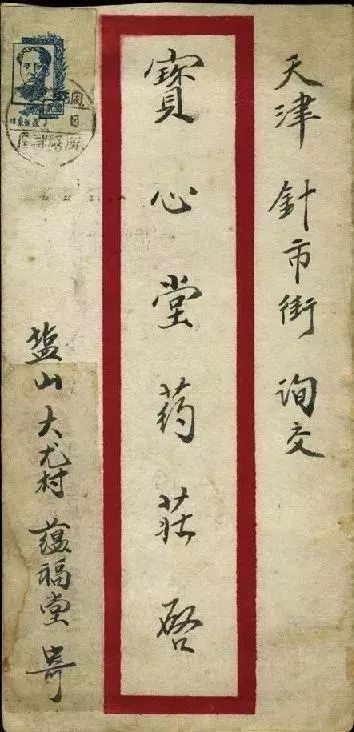 天津針市街询交
寳心堂药莊啓
盐山大尤村蕴福堂寄